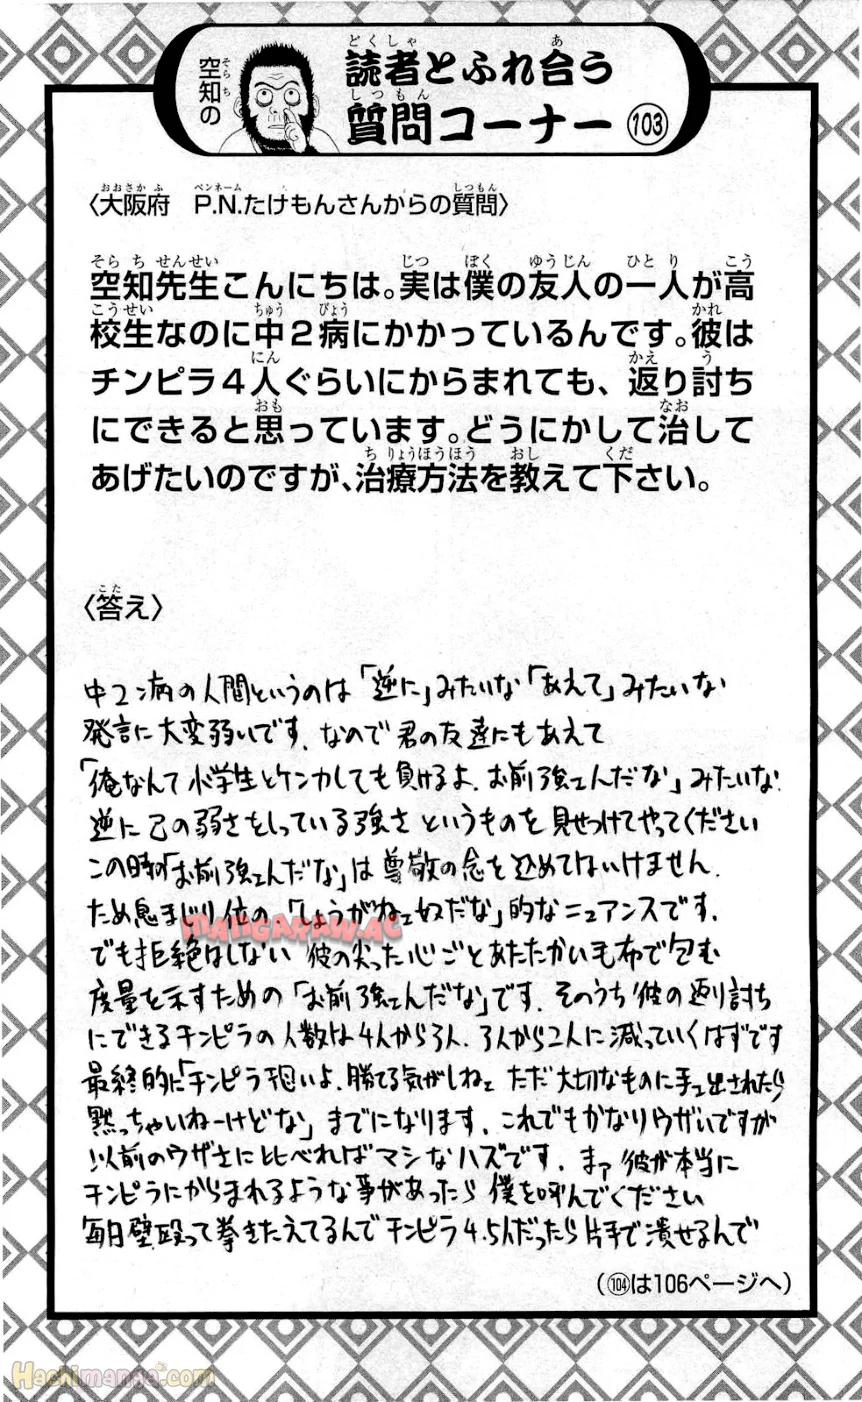 空知の
読者とふれ合う
質問コーナー 103
〈大阪府 P.N.たけもんさんからの質問〉
空知先生こんにちは。実は僕の友人の一人が高
校生なのに中2病にかかっているんです。彼は
チンピラ4人ぐらいにからまれても、返り討ち
にできると思っています。どうにかして治して
あげたいのですが、治療方法を教えて下さい。
〈答え〉
中二病の人間というのは「逆に」みたいな「あえて」みたいな
発言に大変弱いです.なので君の友達にもあえて
「俺なんて小学生とケンカしても負けるよ.お前強ェんだな」みたいな.
逆に己の弱さをしっている強さというものを見せつけてやってください
この時の「お前強ェんだな」は尊敬の念を込めてはいけません.
ため息まじり位の「しょうがねェ奴だな」的なニュアンスです.
でも拒絶はしない 彼の尖った心ごとあたたかい毛布で包む
度量を示すための「お前強ェんだな」です.そのうち彼の返り討ち
にできるチンピラの人数は4人から3人.3人から2人に減っていくはずです
最終的に「チンピラ恐いよ.勝てる気がしねェ ただ大切なものに手ェ出されたら
黙っちゃいねーけどな」までになります.これでもかなりウザいですが
以前のウザさに比べればマシなハズです.まァ彼が本当に
チンピラにからまれるような事があったら僕を呼んでください
毎日壁殴って拳きたえてるんでチンピラ4.5人だったら片手で潰せるんで
(104は106ページへ)
MANGARAW.AC
Hachimanga.com